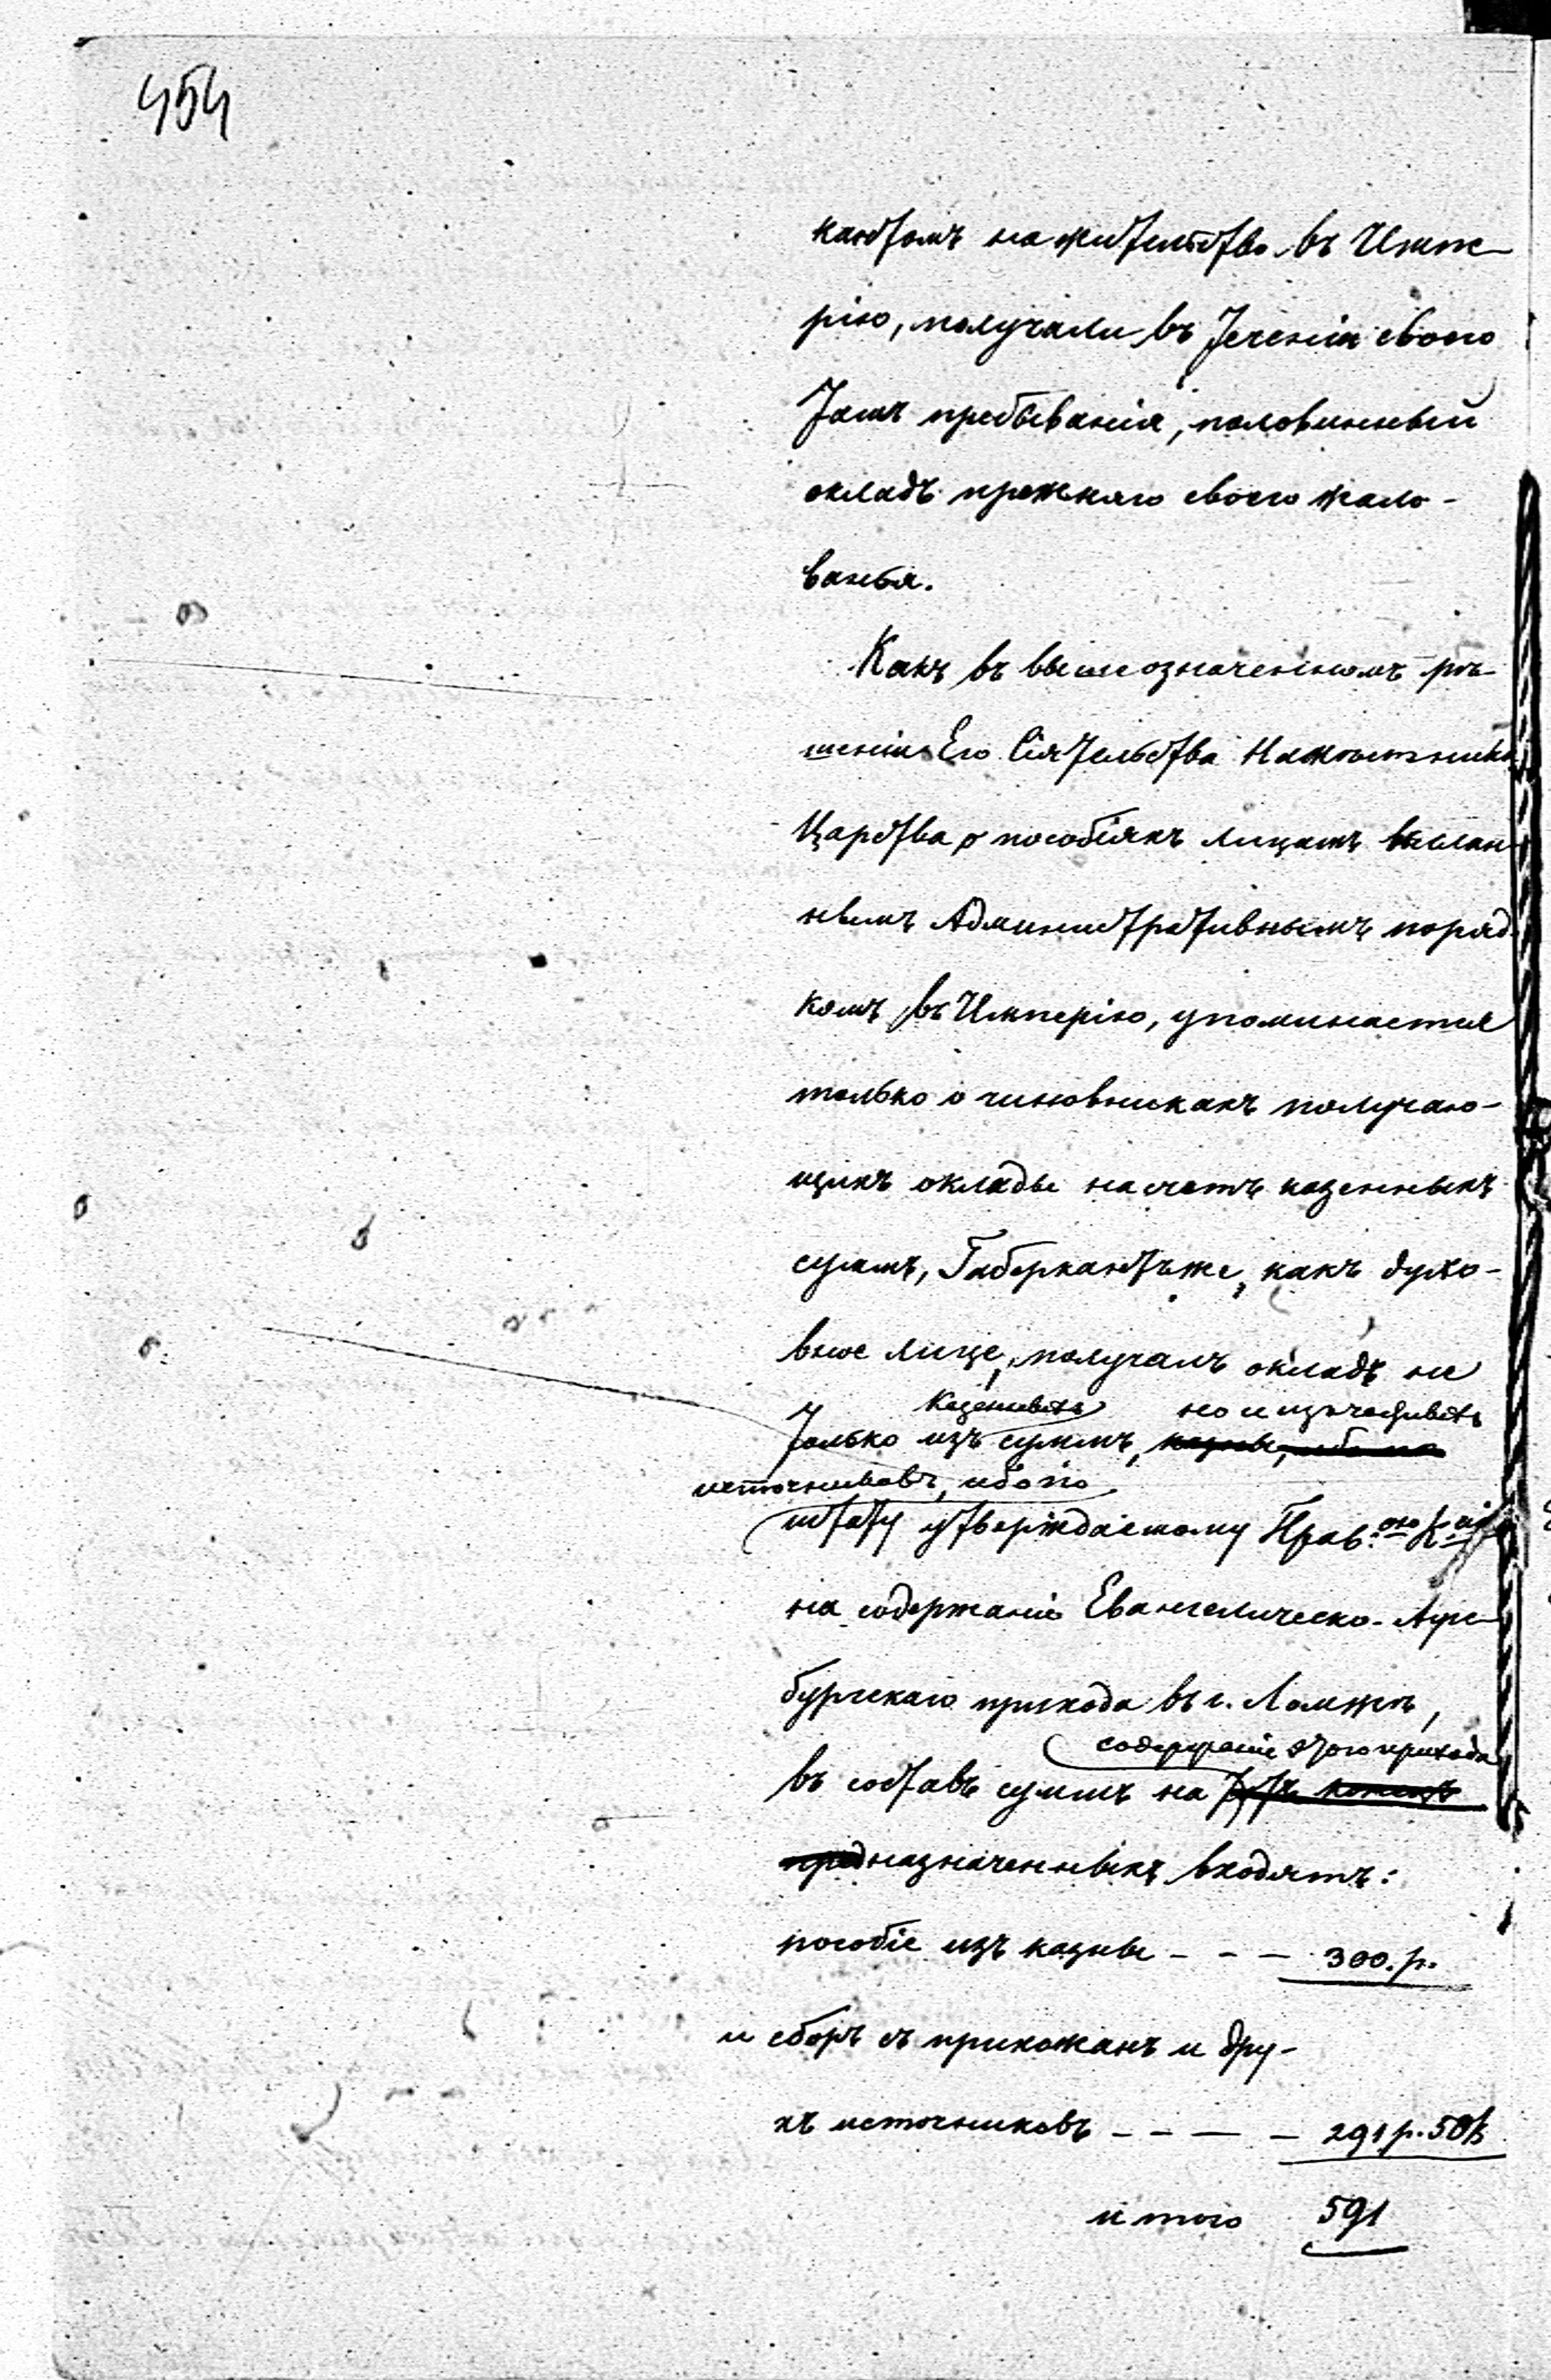 454
на жительство въ Импе-
рію, получали въ теченіи своего
тамъ пребыванія, половинный
окладъ прежняго своего жало-
ванья.
Какъ въ вышеозначенномъ рѣ-
шеніи Его Сіятельства Намѣстника
Царства о пособіяхъ лицамъ выслан-
нымъ Административнымъ поряд-
комъ въ Имперію, упоминается
только о чиновникахъ получаю-
щихъ оклады на счетъ казенныхъ
суммъ, же, какъ духо-
вное лице, получалъ окладъ не
казенныхъ но и изъ
только изъ суммъ,
источниковъ, ибо по
штату утверждаемому Прав.ою
на содержаніе Евангелическо-Аугс-
бургскаго прихода въ г. Ломжѣ,
содержаніе этого прихода
въ составъ суммъ на
предназначенныхъ входятъ:
пособіе изъ казны - - - 300. р.
и сборъ съ прихожанъ и дру-
хъ источниковъ - - - - 291 р. 50 к
итого 591